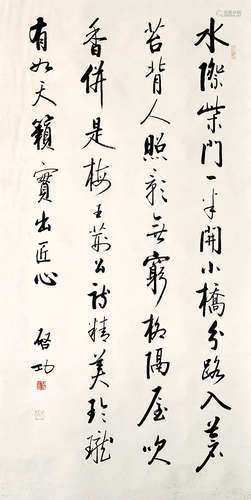 水際柴門一半開小橋分路入蒼
苔背人照影無窮柳隔屋吹
香併是梅王荊公詩精美玲瓏
有如天籟實出匠心
啓功